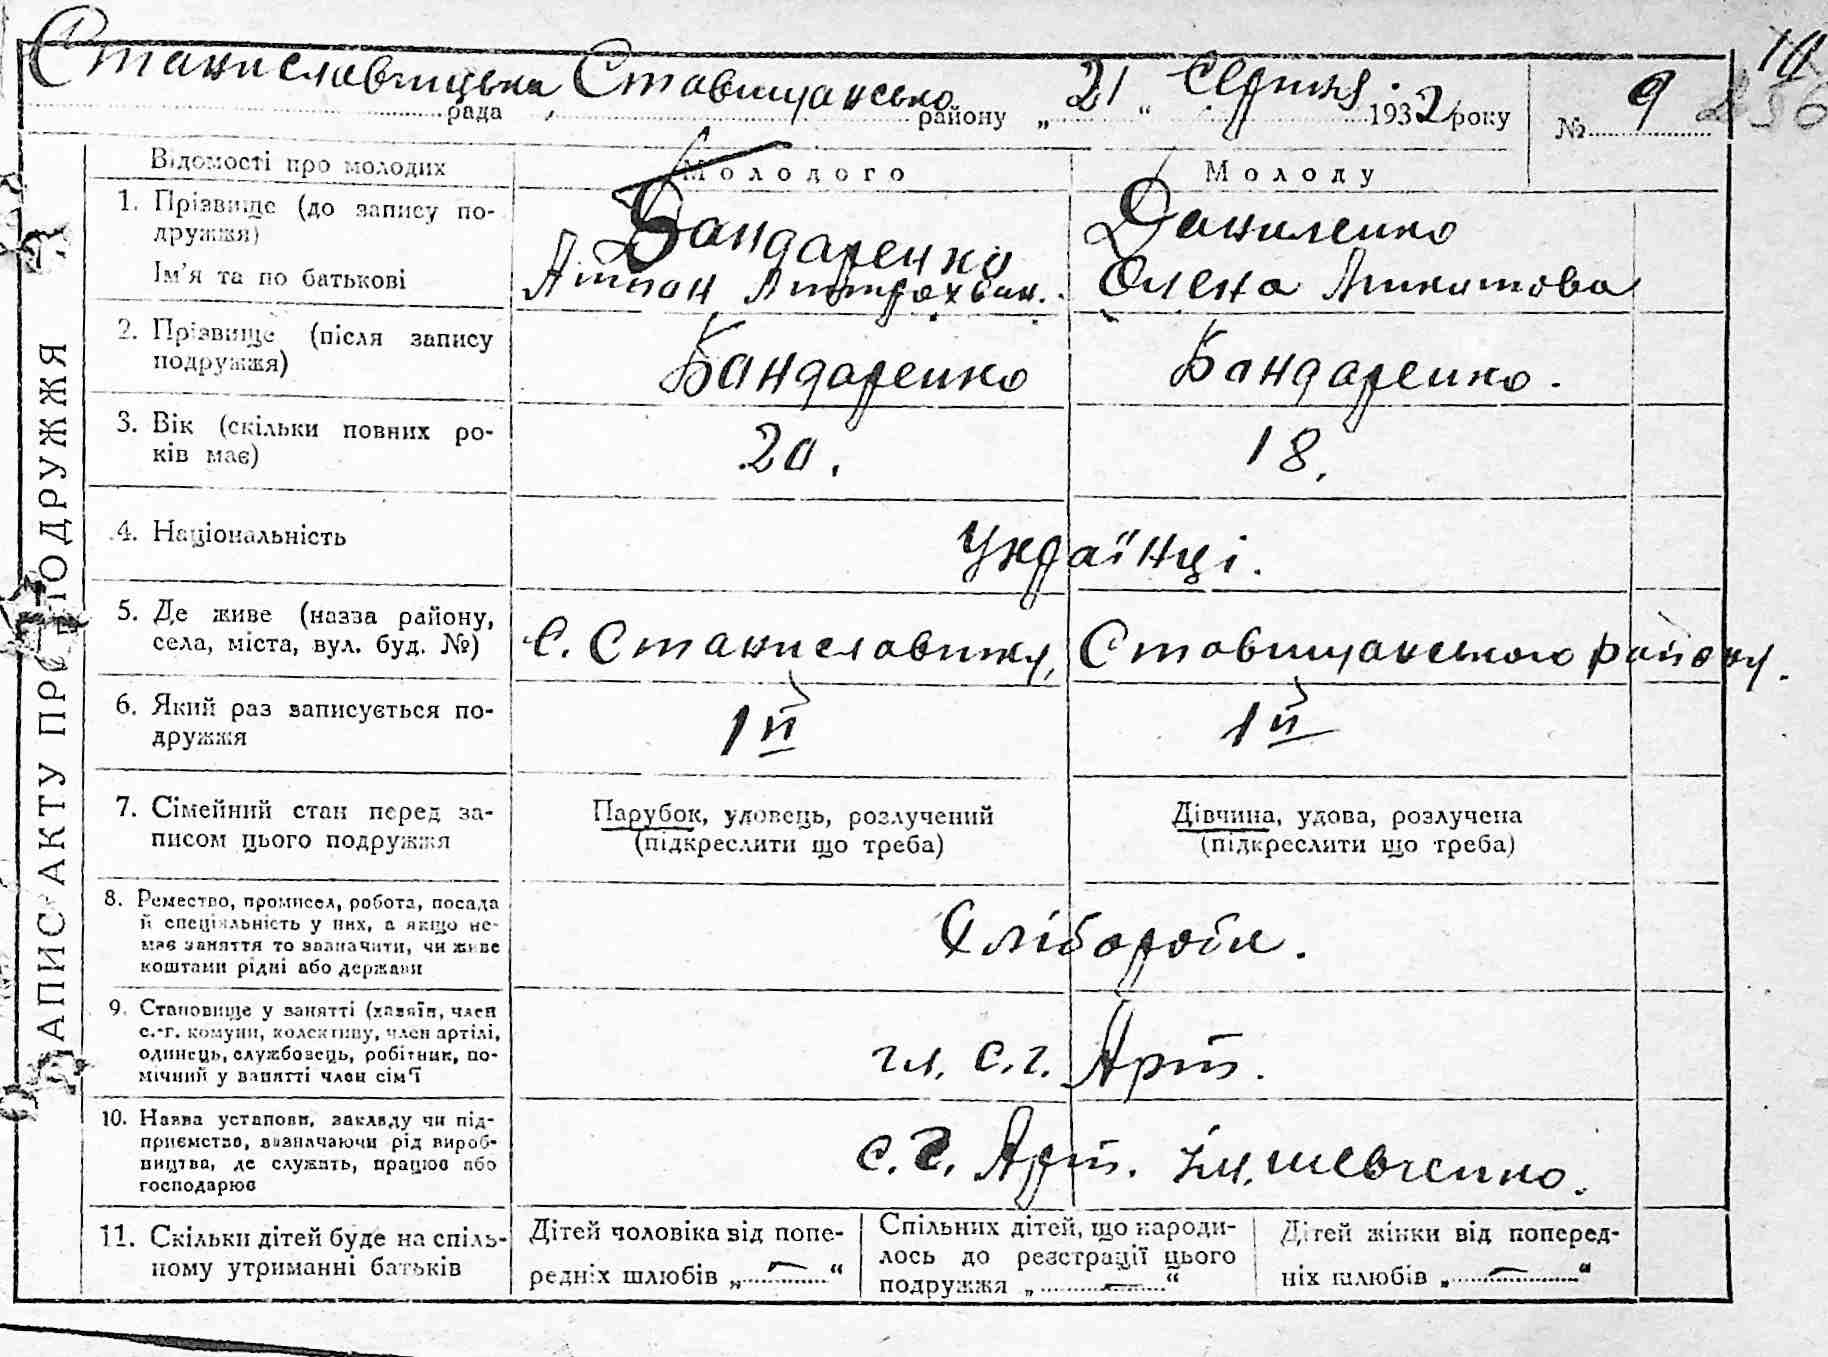 Станиславчицька Ставищансько 21 Серпня. 9 19
рада, району „ “ 1932 року № 256
ЗАПИС АКТУ ПРО ПОДРУЖЖЯ
Відомості про молодих Молодого Молоду
1. Прізвище (до запису по- Бандаренко Даниленко
дружжя)
Ім'я та по батькові Антон Олена Микитова
2. Прізвище (після запису Бандаренко Бандаренко.
подружжя)
3. Вік (скільки повних ро- 20. 18.
ків має)
4. Національність Українці.
5. Де живе (назва району,
села, міста, вул. буд. №) С. Станиславчику, Ставищанського району.
6. Який раз записується по- 1й 1й
дружжя
7. Сімейний стан перед за- Парубок, удовець, розлучений Дівчина, удова, розлучена
писом цього подружжя (підкреслити що треба) (підкреслити що треба)
8. Ремество, промисел, робота, посада
й спеціяльність у них, а якщо не- Хлібороби.
має заняття то зазначити, чи живе
коштами рідні або держави
9. Становище у занятті (хазяїн, член
с.-г. комуни, колективу, член артілі, чл. с.г. Арт.
одинець, службовець, робітник, по-
мічний у занятті член сім'ї
10. Назва установи, закладу чи під-
приємства, визначаючи рід вироб- с.г. Арт. ім. шевченко.
ництва, де служить, працює або
господарює
11. Скільки дітей буде на спіль-
ному утриманні батьків
Дітей чоловіка від попе-
редніх шлюбів „ — “
Спільних дітей, що народи-
лось до реєстрації цього
подружжя „ — “
Дітей жінки від поперед-
ніх шлюбів „ — “